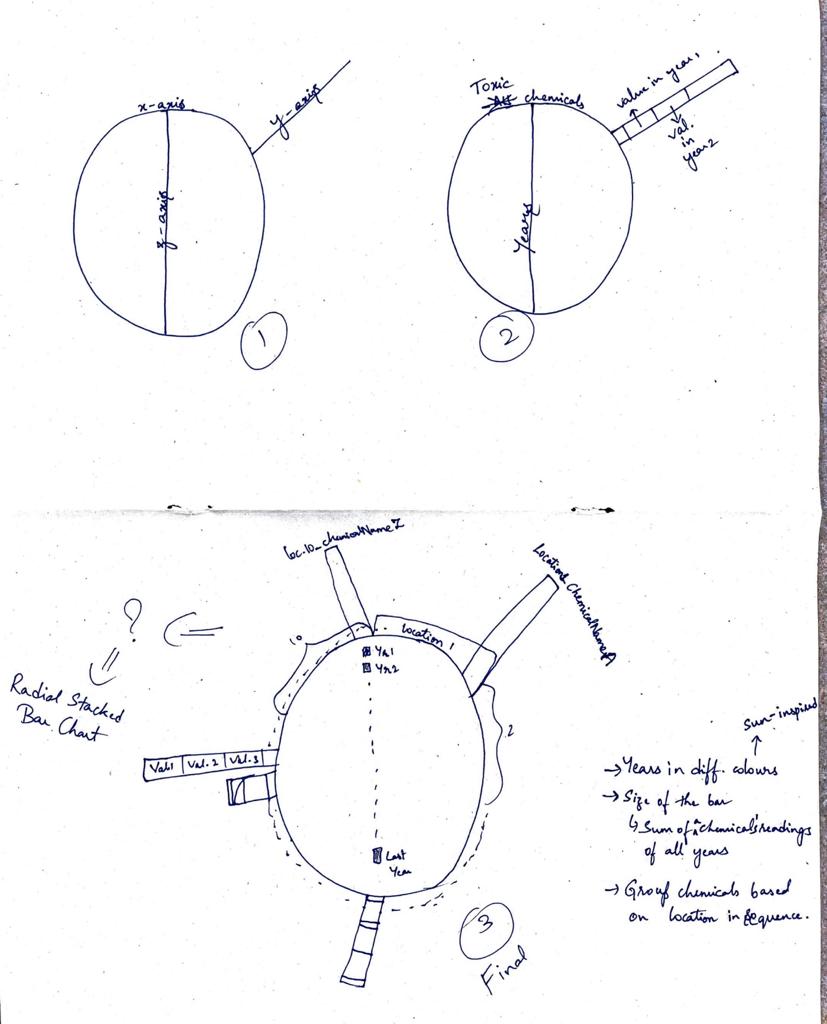 x-axis
y-axis
z-axis
1
Toxic
chemicals
value in year1
val.
in
year2
Years
2
Loc.10_chemicalNameZ
Location1_ChemicalNameA
10
Location 1
2
Yr1
Yr2
?
Radial Stacked
Bar Chart
Val1 Val.2 Val.3
Last
Year
3
Final
sun-inspired
→ Years in diff. colours
→ Size of the bar
↳ Sum of a chemical's readings
of all years
→ Group chemicals based
on location in sequence.